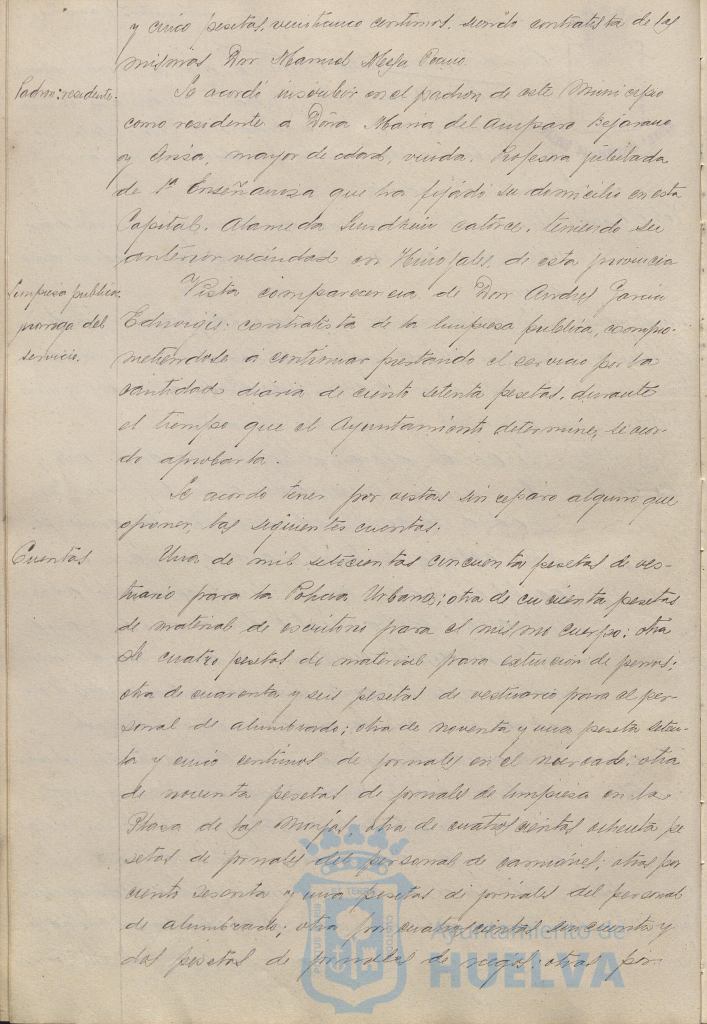 y cinco pesetas, veinticinco centimos, siendo contratista de las
mismas Don Manuel Mesa
Padron: residente.
Se acordó inscribir en el padron de este Municipio
como residente a Doña Maria del Amparo Bejarano
y Ariza, mayor de edad, viuda. Profesora jubilada
de 1ª Enseñanza que ha fijado su domicilio en esta
Capital. Alameda Sundheim catorce, teniendo su
anterior vecindad en Hinojales, de esta provincia
Limpieza publica
prorroga del
servicio.
Vista comparecencia de Don Andres Garcia
contratista de la limpieza publica, compro-
metiendose a continuar prestando el servicio por la
cantidad diaria de ciento setenta pesetas, durante
el tiempo que el Ayuntamiento determine, se acor-
do aprobarla.
Se acordo tener por vistas sin reparo alguno que
oponer, las siguientes cuentas.
Cuentas
Una de mil setecientas cincuenta pesetas de ves-
tuario para la Policia Urbana; otra de cincuenta pesetas
de material de escritorio para el mismo cuerpo; otra
de cuatro pesetas de material para extincion de perros;
otra de cuarenta y seis pesetas de vestuario para el per-
sonal de alumbrado; otra de noventa y una peseta seten-
ta y cinco centimos de jornales en el mercado; otra
de noventa pesetas de jornales de limpieza en la
Plaza de las Monjas, otra de cuatrocientas ochenta pe
setas de jornales del personal de carnaval; otras por
ciento sesenta y una pesetas de jornales del personal
de alumbrado; otra por cuatrocientas cincuenta y
dos pesetas de jornales de riegos; otras por
Ayuntamiento de
HUELVA